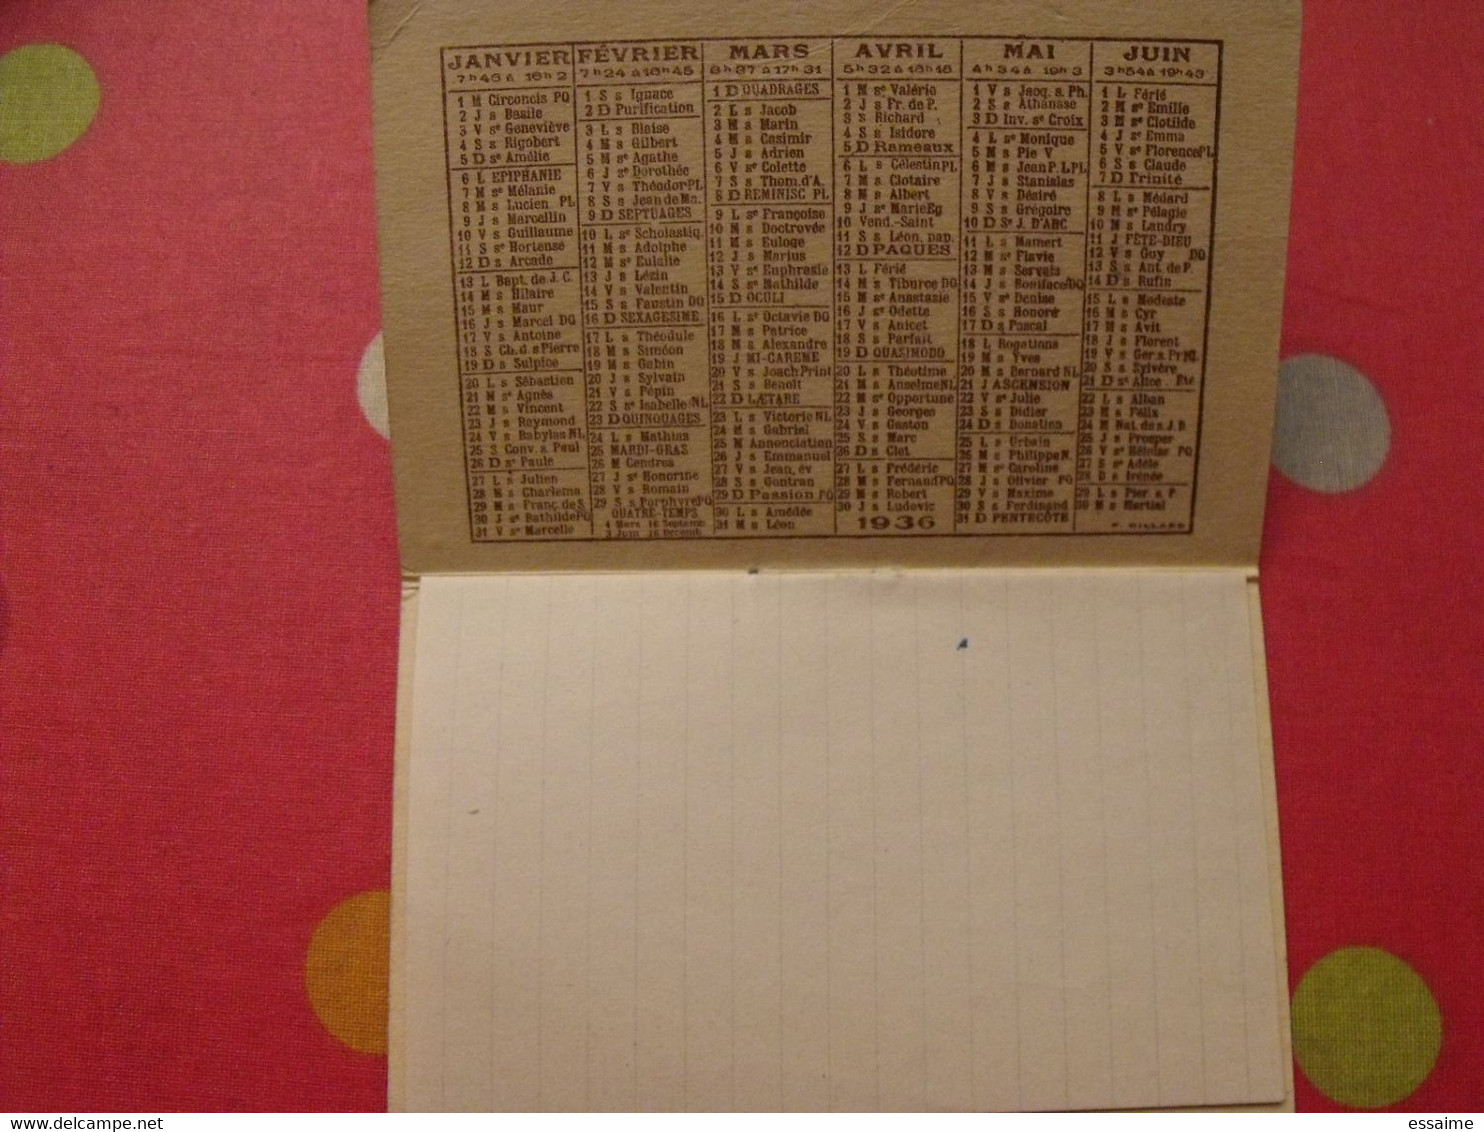 JANVIER
7h46 à 16h2
1 M Circoncis PQ
2 J s Basile
3 V sᵉ Geneviève
4 S s Rigobert
5 D sᵉ Amélie
6 L EPIPHANIE
7 M sᵉ Mélanie
8 M s Lucien PL
9 J s Marcellin
10 V s Guillaume
11 S sᵉ Hortense
12 D s Arcade
13 L Bapt. de J. C.
14 M s Hilaire
15 M s Maur
16 J s Marcel DQ
17 V s Antoine
18 S Ch. d. s Pierre
19 D s Sulpice
20 L s Sébastien
21 M sᵉ Agnès
22 M s Vincent
23 J s Raymond
24 V s Babylas NL
25 S Conv. s. Paul
26 D sᵉ Paule
27 L s Julien
28 M s Charlema
29 M s Franç. de S.
30 J sᵉ Bathilde PQ
31 V sᵉ Marcelle
FÉVRIER
7h24 à 16h45
1 S s Ignace
2 D Purification
3 L s Blaise
4 M s Gilbert
5 M sᵉ Agathe
6 J sᵉ Dorothée
7 V s Théodor PL
8 S s Jean de Ma.
9 D SEPTUAGES
10 L sᵉ Scholastiq.
11 M s Adolphe
12 M sᵉ Eulalie
13 J s Lézin
14 V s Valentin
15 S s Faustin DQ
16 D SEXAGESIME
17 L s Théodule
18 M s Siméon
19 M s Gabin
20 J s Sylvain
21 V s Pépin
22 S sᵉ Isabelle NL
23 D QUINQUAGES
24 L s Mathias
25 MARDI-GRAS
26 M Cendres
27 J sᵉ Honorine
28 V s Romain
29 S s Porphyre PQ
QUATRE-TEMPS
4 Mars 16 Septemb
3 Juin 16 Décemb
MARS
6h37 à 17h31
1 D QUADRAGES
2 L s Jacob
3 M s Marin
4 M s Casimir
5 J s Adrien
6 V sᵉ Colette
7 S s Thom. d'A.
8 D REMINISC PL
9 L sᵉ Françoise
10 M s Doctrovée
11 M s Euloge
12 J s Marius
13 V sᵉ Euphrasie
14 S sᵉ Mathilde
15 D OCULI
16 L sᵉ Octavie DQ
17 M s Patrice
18 M s Alexandre
19 J MI-CAREME
20 V s Joach Print
21 S s Benoît
22 D LÆTARE
23 L s Victorie NL
24 M s Gabriel
25 M Annonciation
26 J s Emmanuel
27 V s Jean, év
28 S s Gontran
29 D Passion PQ
30 L s Amédée
31 M s Léon
AVRIL
5h32 à 18h18
1 M sᵉ Valérie
2 J s Fr. de P.
3 S Richard
4 S s Isidore
5 D Rameaux
6 L s Célestin PL
7 M s Clotaire
8 M s Albert
9 J sᵉ Marie Eg
10 Vend.-Saint
11 S s Léon, pap.
12 D PAQUES
13 L Férié
14 M s Tiburce DQ
15 M sᵉ Anastasie
16 J sᵉ Odette
17 V s Anicet
18 S s Parfait
19 D QUASIMODO
20 L s Théotime
21 M s Anselme NL
22 M sᵉ Opportune
23 J s Georges
24 V s Gaston
25 S s Marc
26 D s Clet
27 L s Frédéric
28 M s Fernand PQ
29 M s Robert
30 J s Ludovic
1936
MAI
4h34 à 19h3
1 V s Jacq. s. Ph.
2 S s Athanase
3 D Inv. sᵉ Croix
4 L sᵉ Monique
5 M s Pie V
6 M s Jean P. L. PL
7 J s Stanislas
8 V s Désiré
9 S s Grégoire
10 D Sᵉ J. D'ARC
11 L s Mamert
12 M sᵉ Flavie
13 M s Servais
14 J s Boniface DQ
15 V sᵉ Denise
16 S s Honoré
17 D s Pascal
18 L Rogations
19 M s Yves
20 M s Bernard NL
21 J ASCENSION
22 V sᵉ Julie
23 S s Didier
24 D s Donatien
25 L s Urbain
26 M s Philippe N.
27 M sᵉ Caroline
28 J s Olivier PQ
29 V s Maxime
30 S s Ferdinand
31 D PENTECÔTE
JUIN
3h54 à 19h43
1 L Férié
2 M sᵉ Emilie
3 M sᵉ Clotilde
4 J sᵉ Emma
5 V sᵉ Florence PL
6 S s Claude
7 D Trinité
8 L s Médard
9 M sᵉ Pélagie
10 M s Landry
11 J FÊTE-DIEU
12 V s Guy DQ
13 S s Ant. de P.
14 D s Rufin
15 L s Modeste
16 M s Cyr
17 M s Avit
18 J s Florent
19 V s Ger. s. Pr NL
20 S s Sylvère
21 D sᵉ Alice. Eté
22 L s Alban
23 M s Félix
24 M Nat. de s. J. B
25 J s Prosper
26 V sᵉ Héloïse PQ
27 S sᵉ Adèle
28 D s Irénée
29 L s Pier. s. P
30 M s Martial
P. GILLARD
delcampe.net
essaime